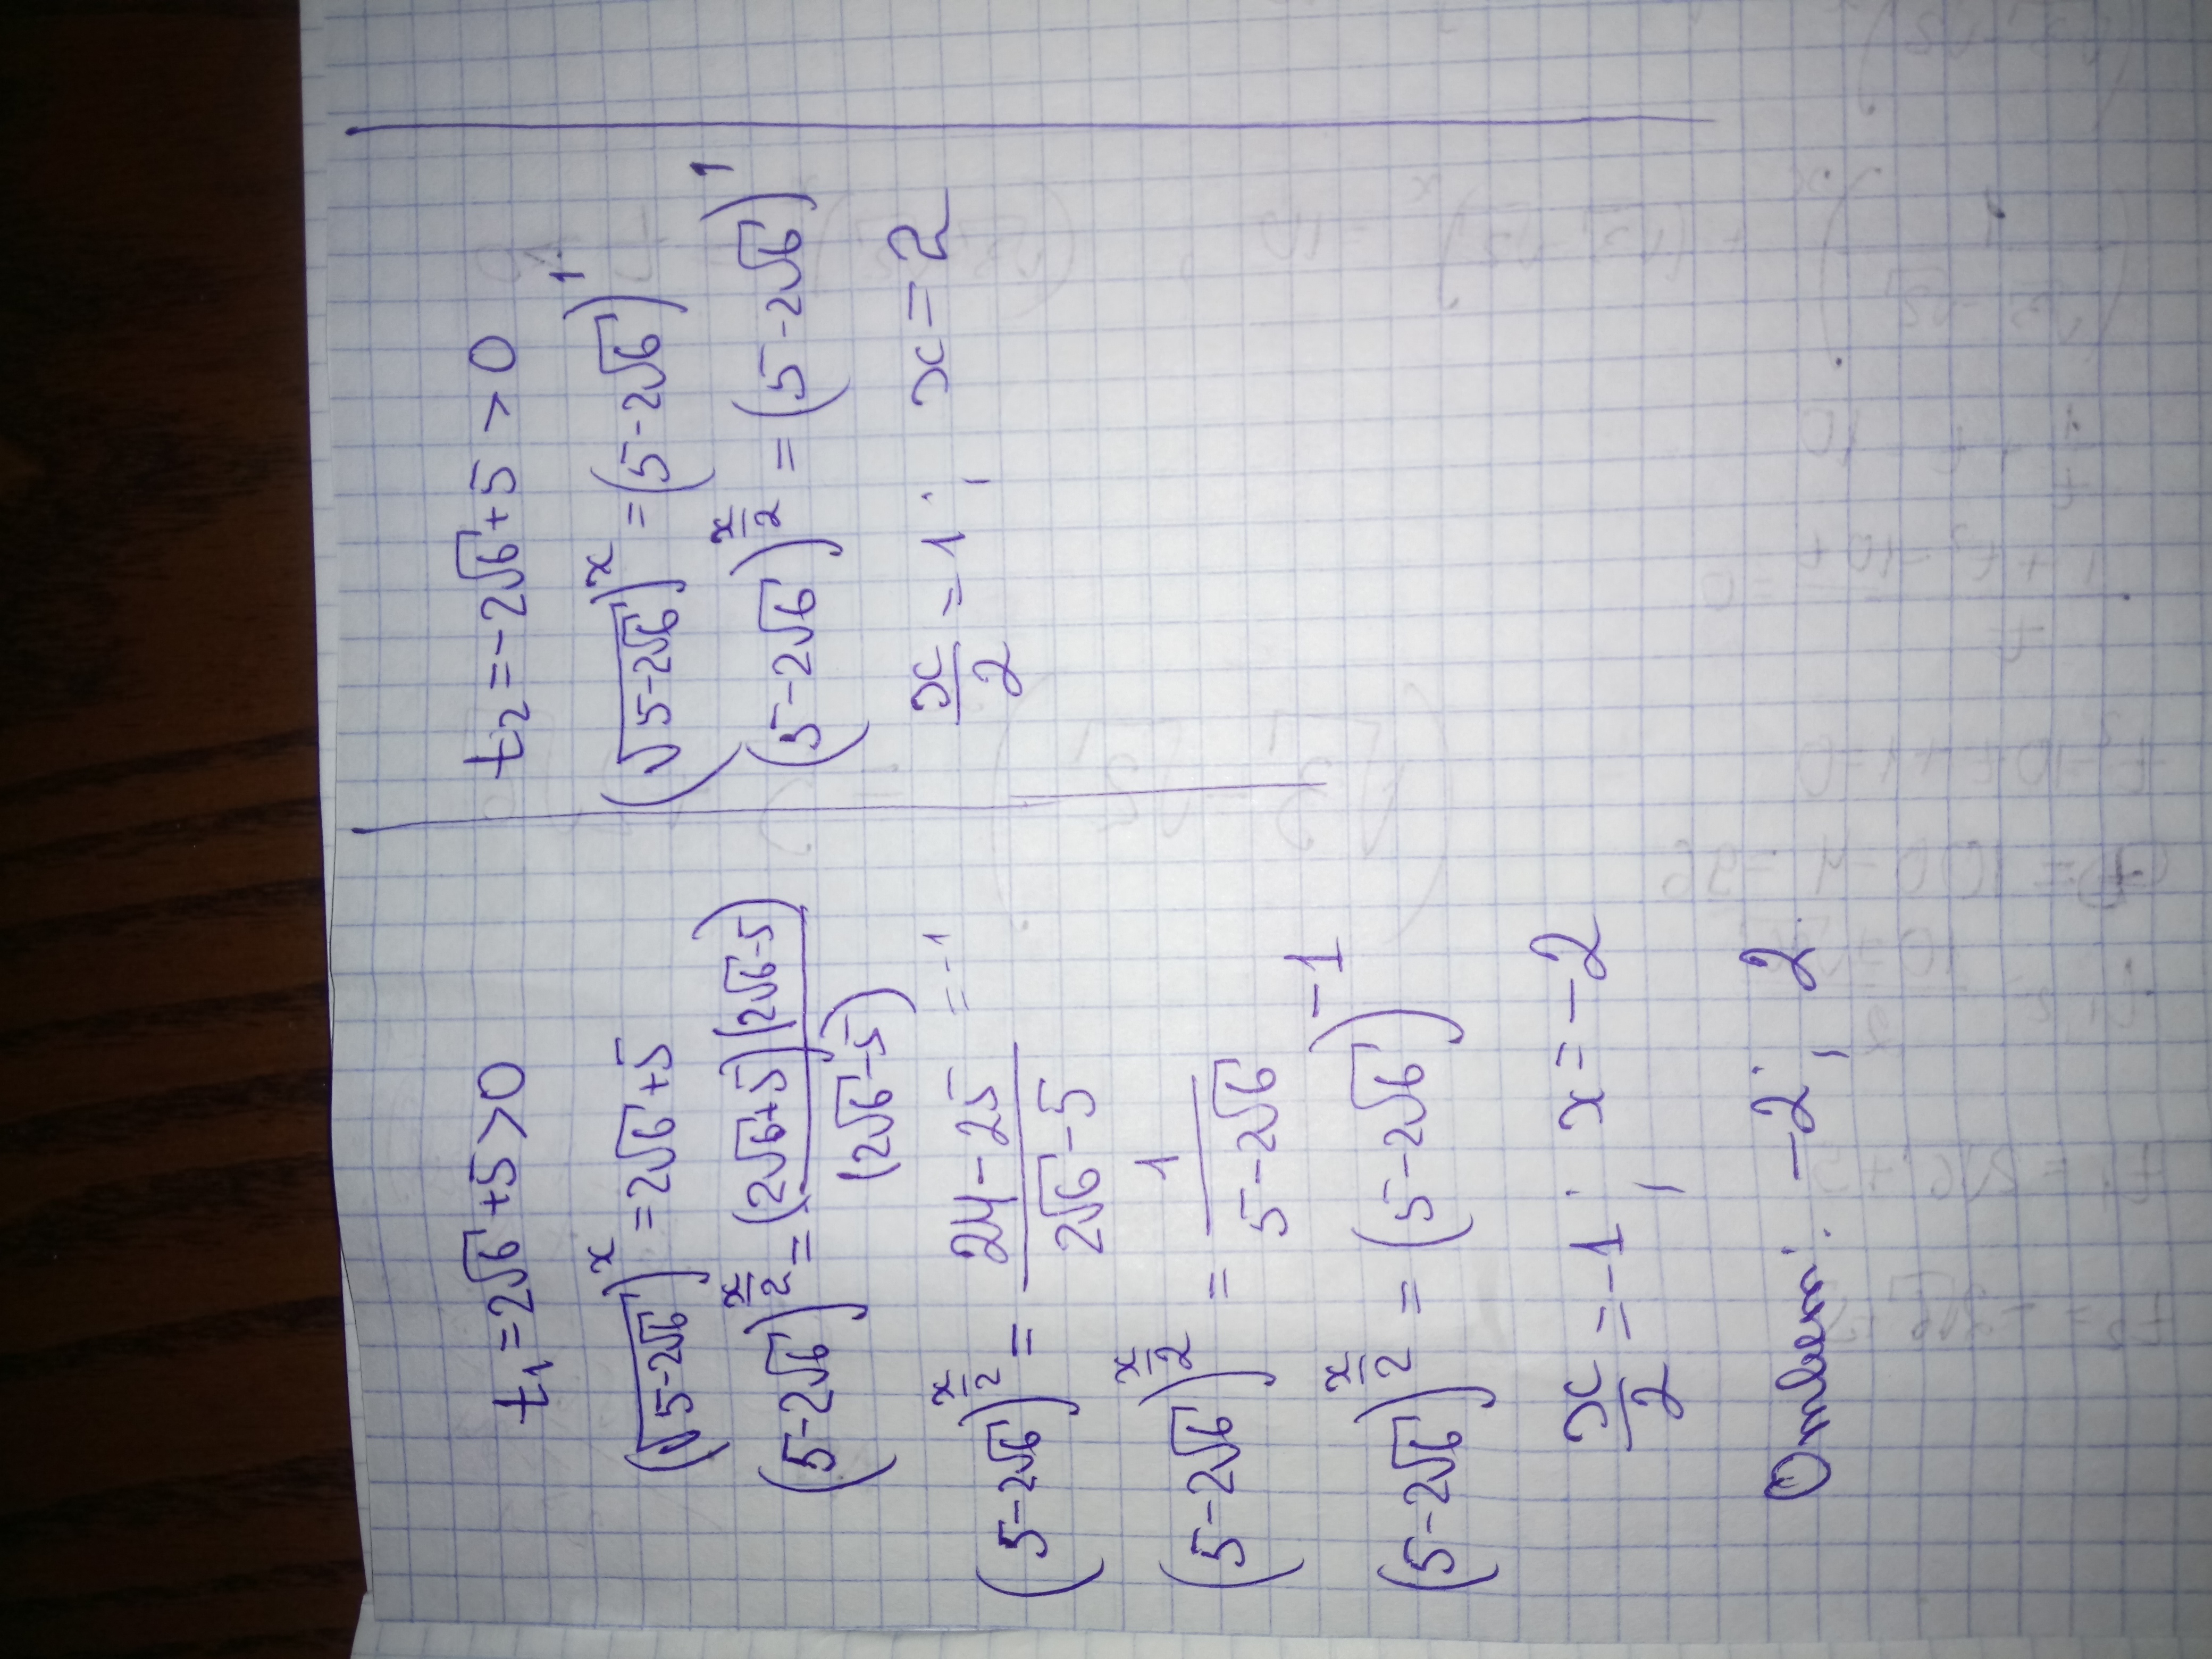 t₁ = 2√6 + 5 > 0
(√(5-2√6))^x = 2√6 + 5
(5-2√6)^(x/2) = (2√6+5)(2√6-5) / (2√6-5)
(5-2√6)^(x/2) = (24-25) / (2√6-5) = -1
(5-2√6)^(x/2) = 1 / (5-2√6)
(5-2√6)^(x/2) = (5-2√6)^(-1)
x/2 = -1; x = -2
Ответ: -2; 2
t₂ = -2√6 + 5 > 0
(√(5-2√6))^x = (5-2√6)^1
(5-2√6)^(x/2) = (5-2√6)^1
x/2 = 1; x = 2